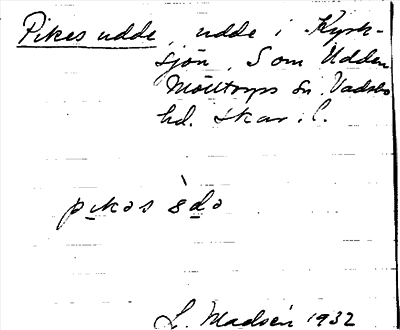 Pikes udde, udde i Kyrk-
sjön, S om Udden
Möltorps sn. Vadsbo
hd. Skar. l.
pikəs ùdə
L. Madsén 1932